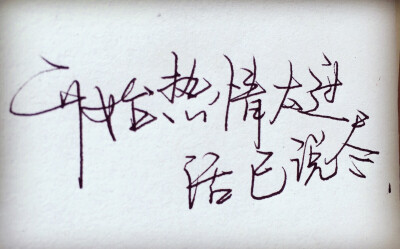 开始热情太过
话已说尽.